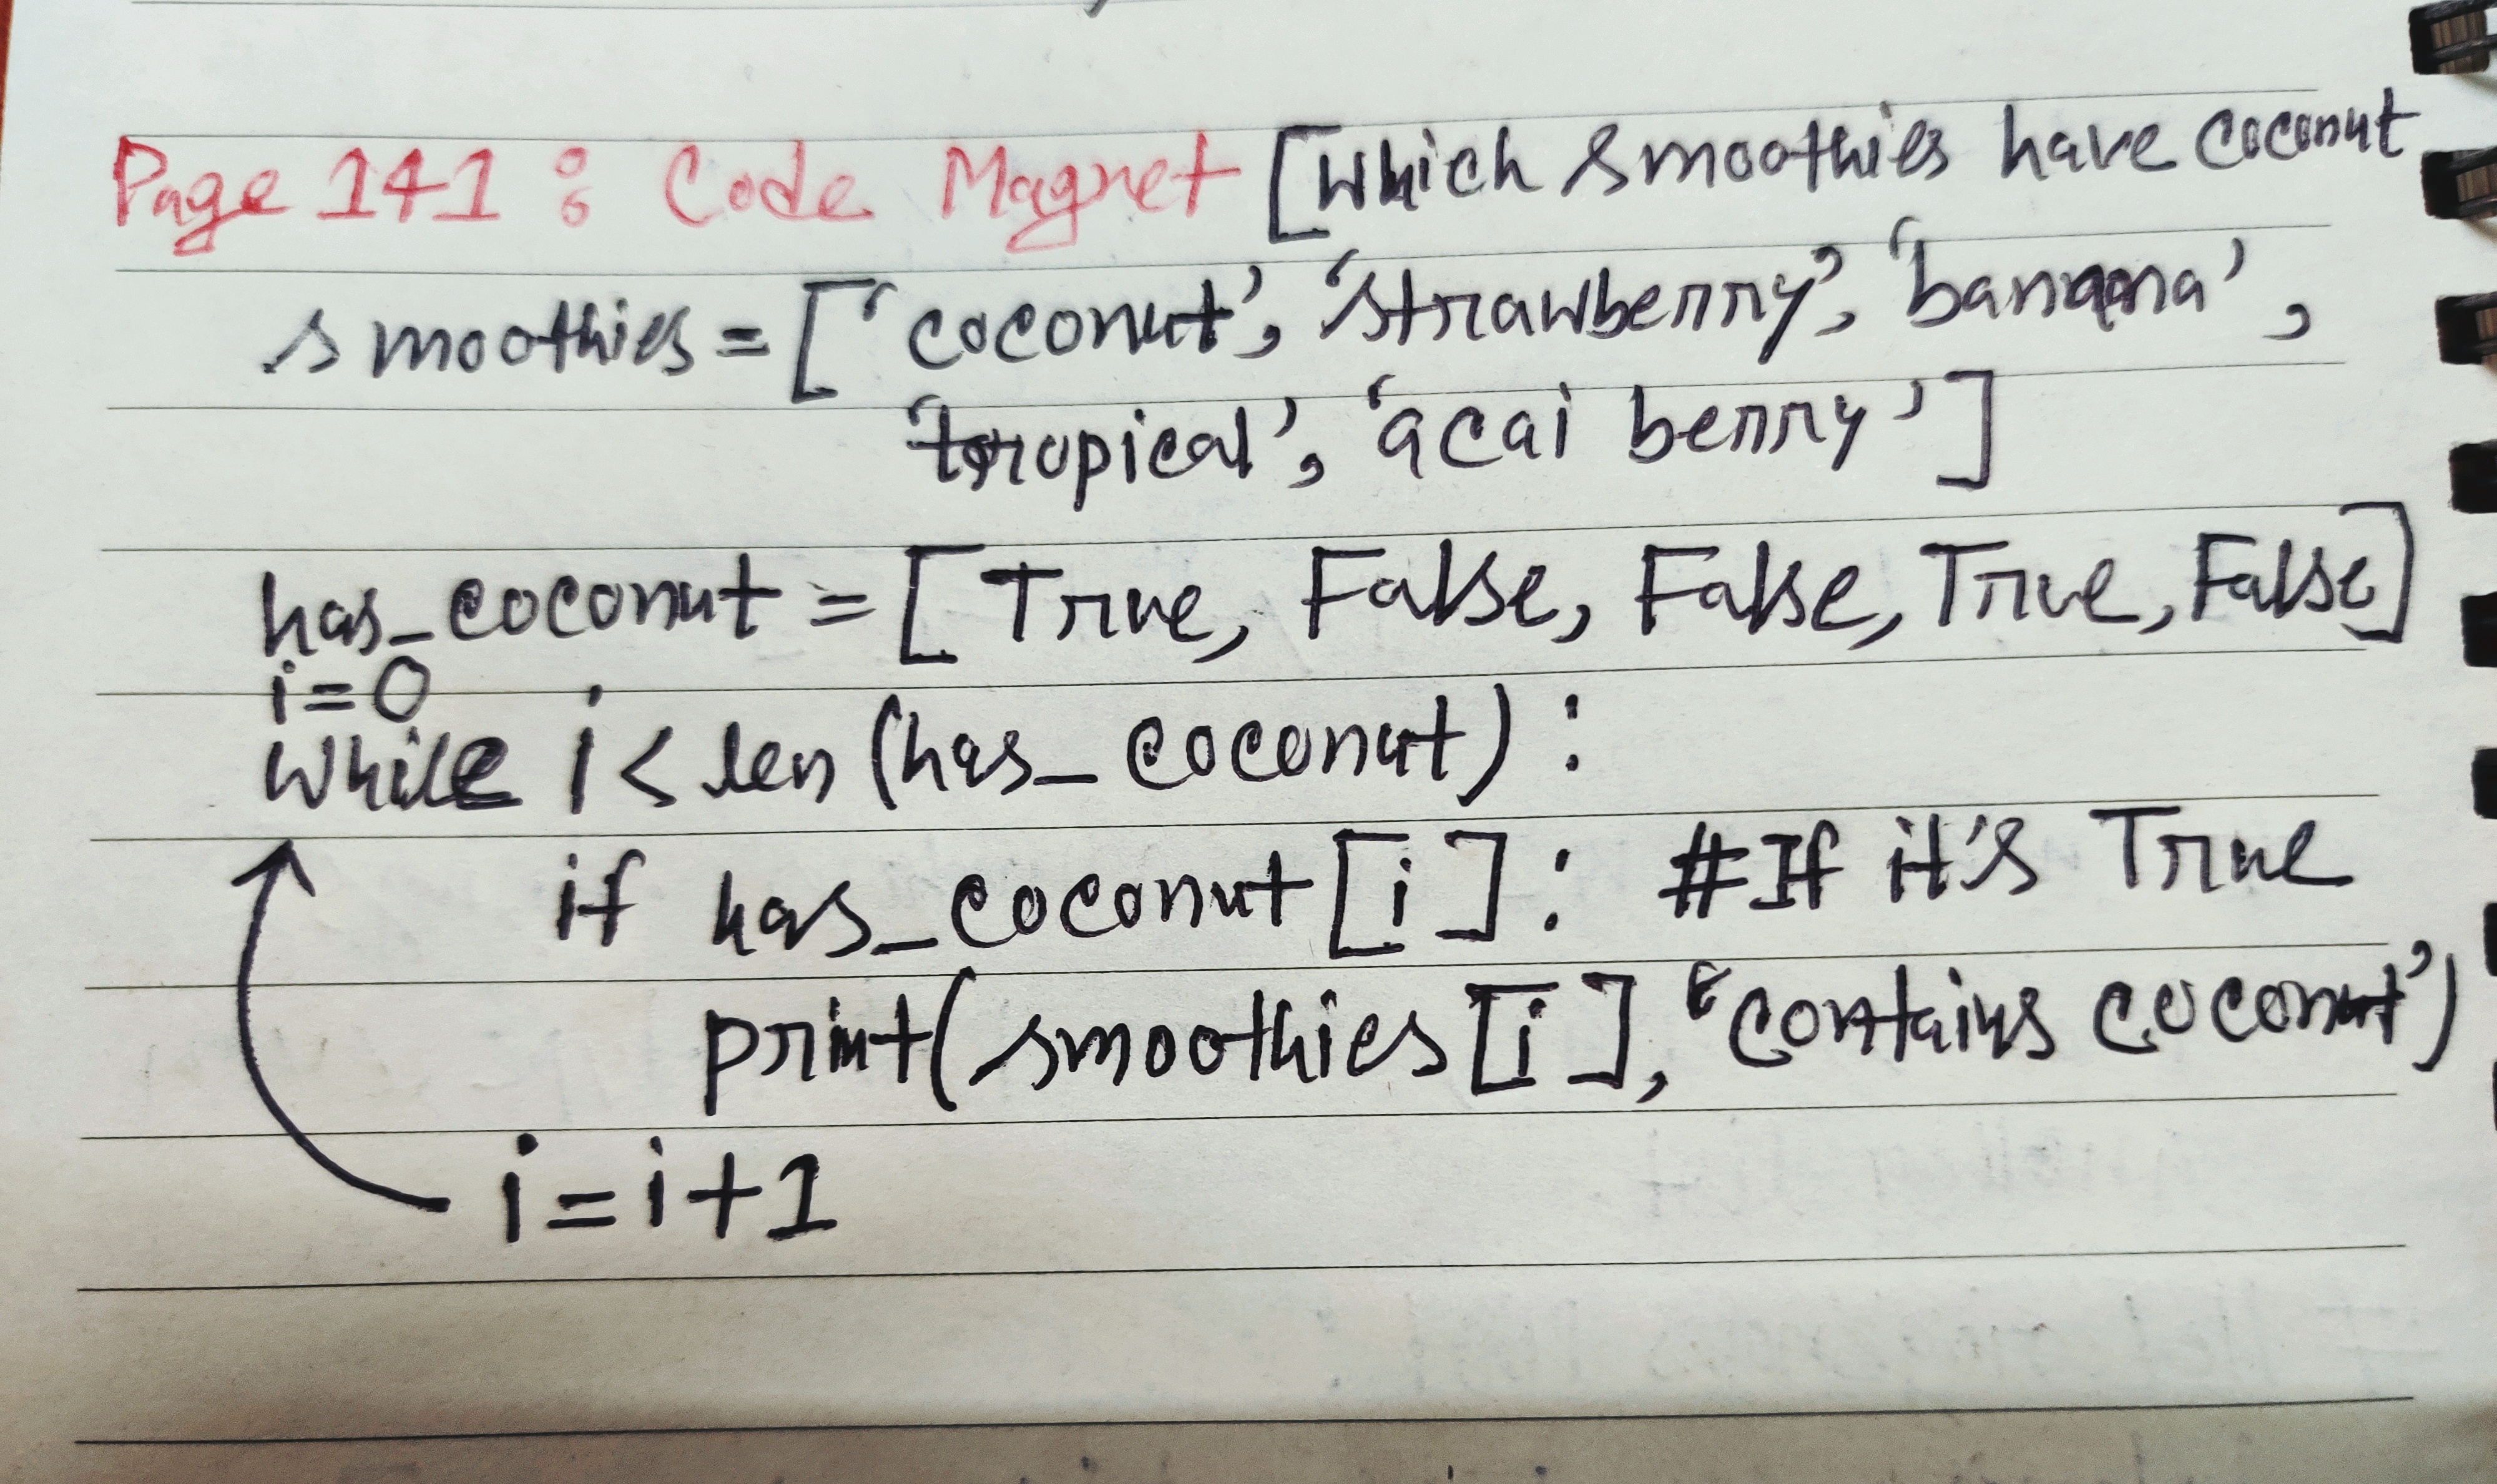 Page 141 : Code Magnet [Which smoothies have coconut
smoothies = ['coconut', 'strawberry', 'banana',
'tropical', 'acai berry']
has_coconut = [True, False, False, True, False]
i=0
While i < len (has_coconut) :
if has_coconut [i] : #If it's True
print(smoothies [i], 'contains coconut')
i = i+1